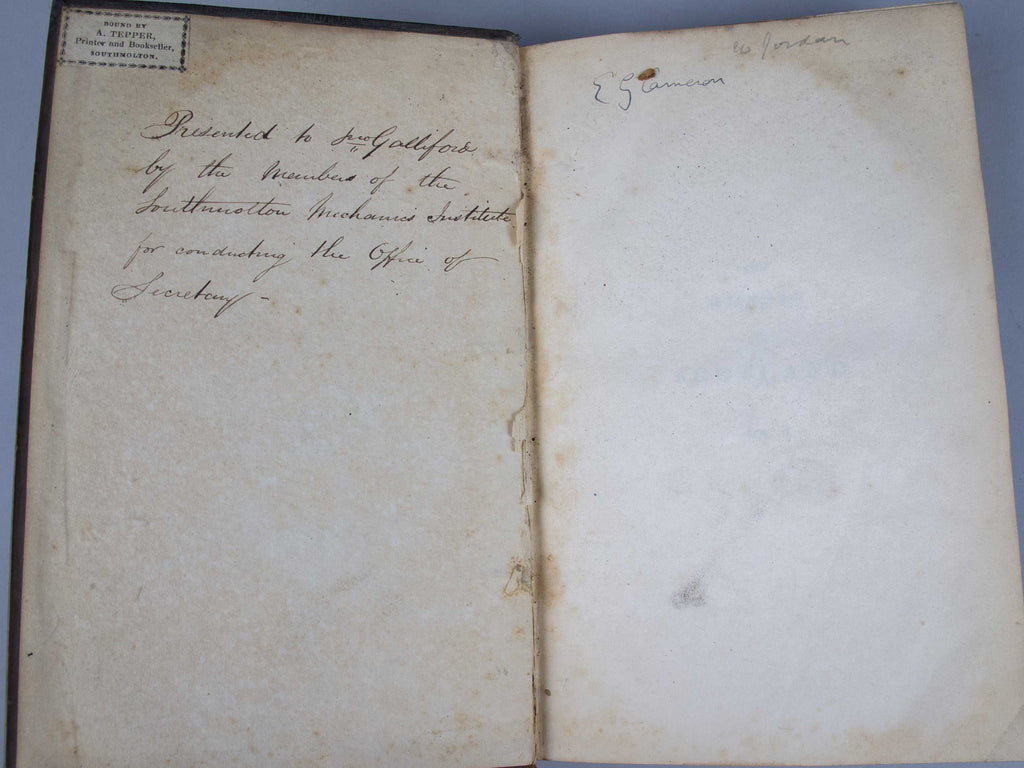 BOUND BY
A. TEPPER,
Printer and Bookseller,
SOUTHMOLTON.
Presented to Jno Galliford
by the Members of the
Southmolton Mechanics Institute
for conducting the Office of
Secretary -
W Jordan
E G Cameron